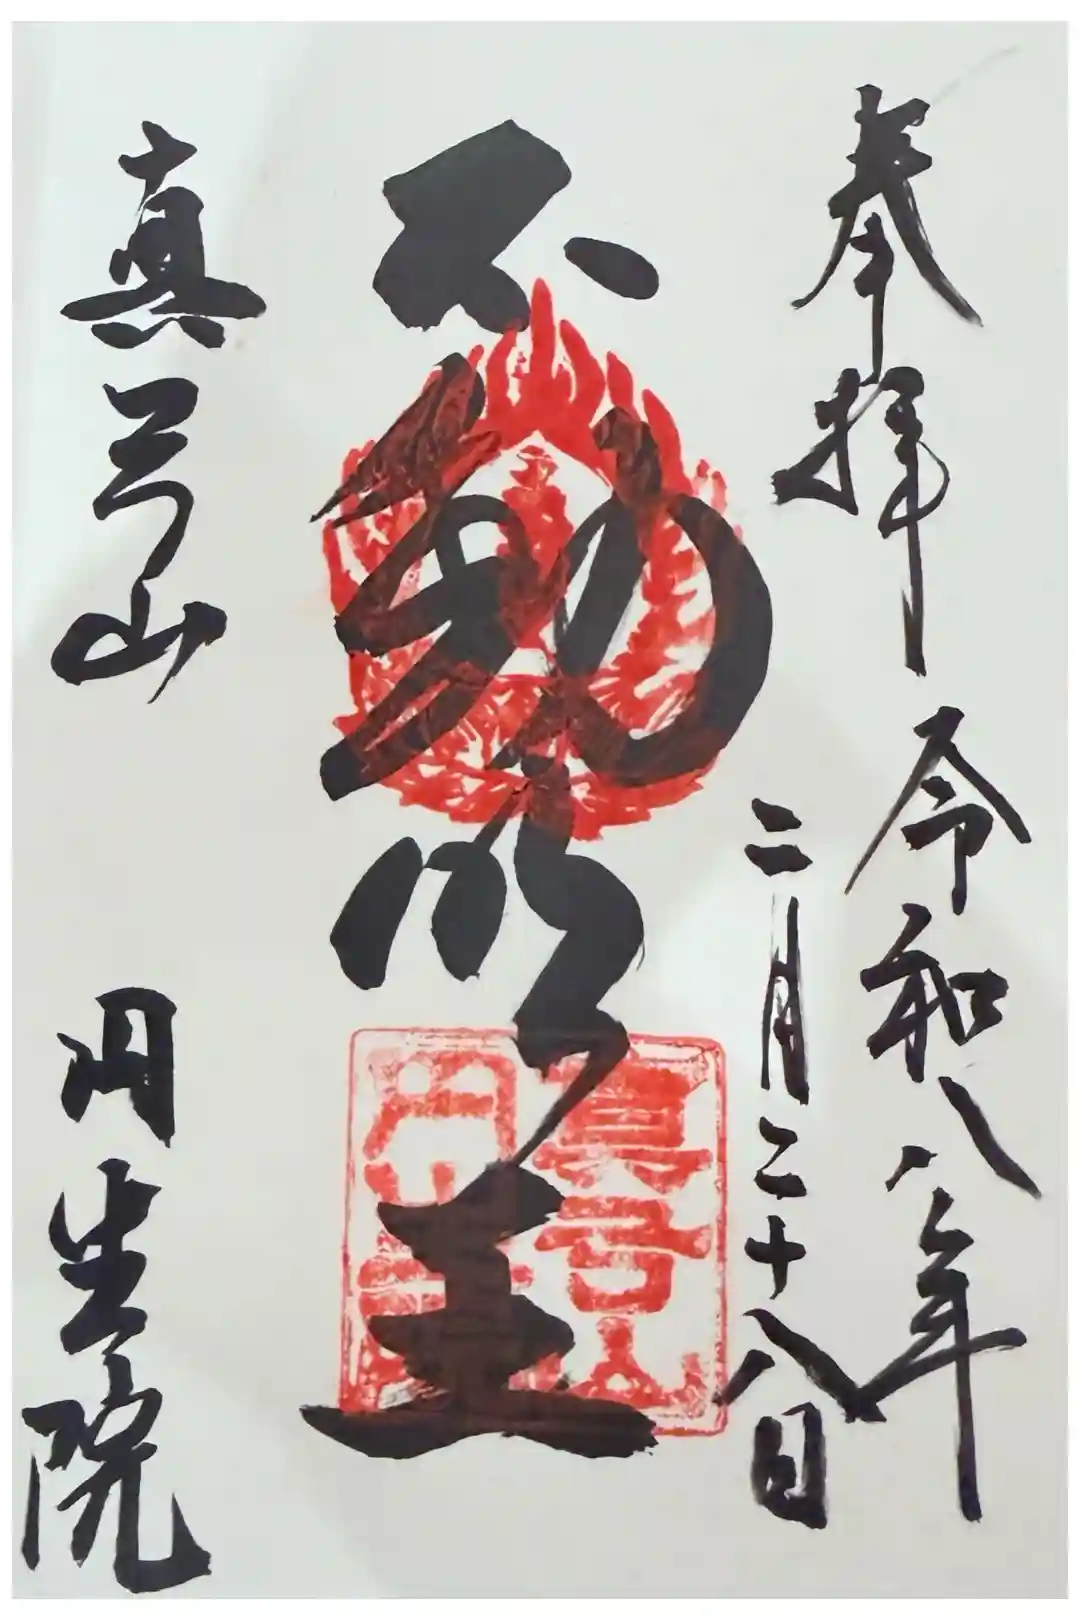 奉拝
令和八年
二月二十八日
不動明王
真言山
円生院
真言山